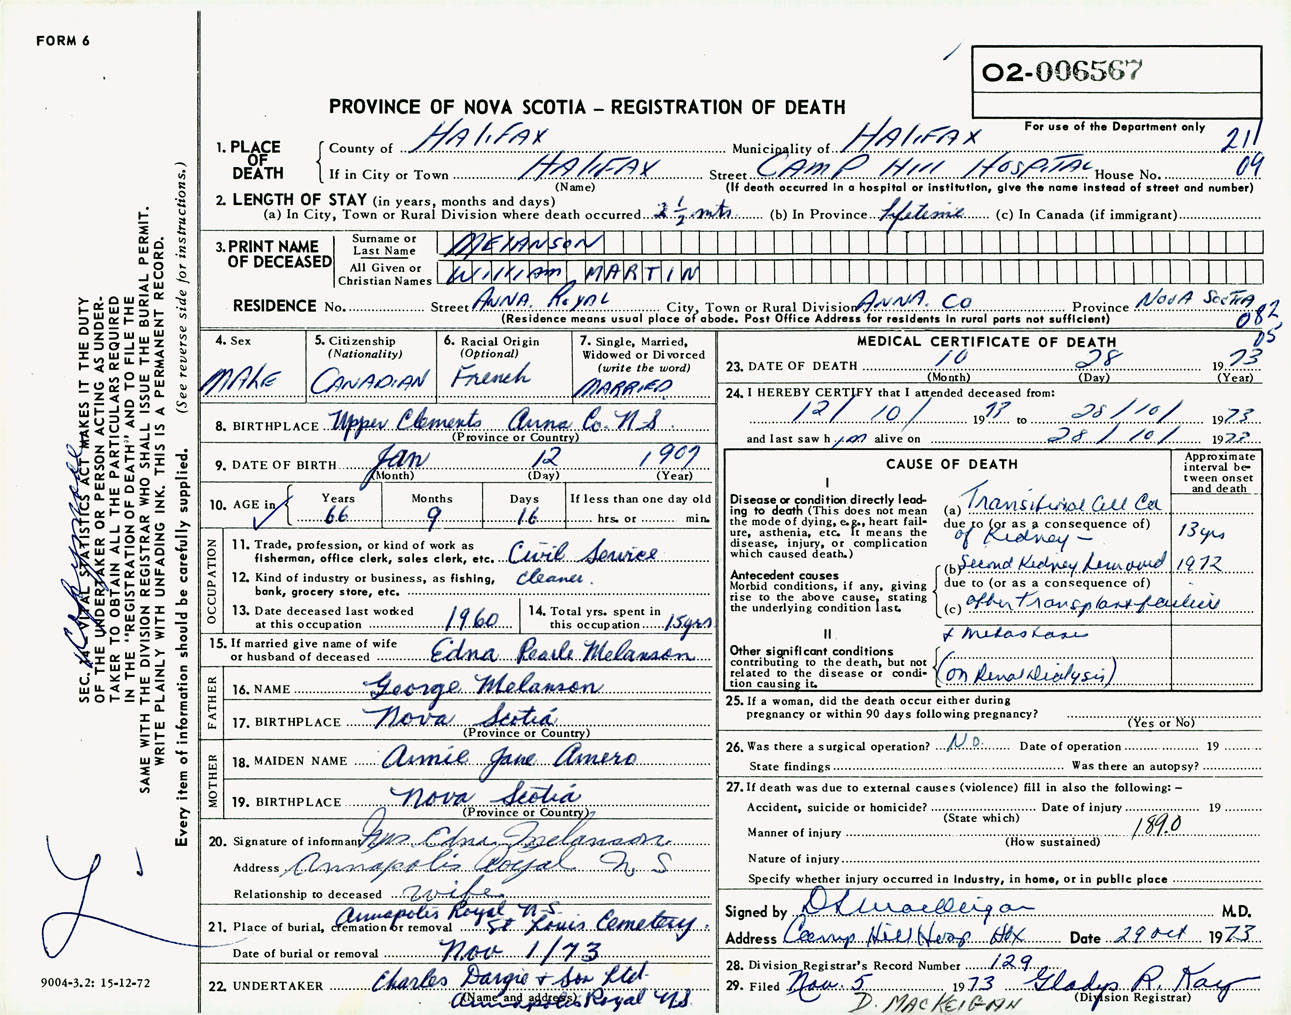 FORM 6
O2-006567
PROVINCE OF NOVA SCOTIA – REGISTRATION OF DEATH
For use of the Department only
211
04
1. PLACE OF DEATH
County of HALIFAX Municipality of HALIFAX
If in City or Town HALIFAX Street CAMP HILL HOSPITAL House No.
(Name) (If death occurred in a hospital or institution, give the name instead of street and number)
2. LENGTH OF STAY (in years, months and days)
(a) In City, Town or Rural Division where death occurred 2 1/2 mts. (b) In Province lifetime (c) In Canada (if immigrant)
3. PRINT NAME OF DECEASED
Surname or Last Name MELANSON
All Given or Christian Names WILLIAM MARTIN
RESIDENCE No. Street ANNA. ROYAL City, Town or Rural Division ANNA. CO Province NOVA SCOTIA
(Residence means usual place of abode. Post Office Address for residents in rural parts not sufficient)
082
05
4. Sex MALE
5. Citizenship (Nationality) CANADIAN
6. Racial Origin (Optional) French
7. Single, Married, Widowed or Divorced (write the word) MARRIED
8. BIRTHPLACE Upper Clements Anna Co. N.S.
(Province or Country)
9. DATE OF BIRTH Jan 12 1907
(Month) (Day) (Year)
10. AGE in Years 66 Months 9 Days 16 If less than one day old hrs. or min.
OCCUPATION
11. Trade, profession, or kind of work as fisherman, office clerk, sales clerk, etc. Civil Service
12. Kind of industry or business, as fishing, bank, grocery store, etc. cleaner.
13. Date deceased last worked at this occupation 1960
14. Total yrs. spent in this occupation 15yrs
15. If married give name of wife or husband of deceased Edna Pearle Melanson
FATHER
16. NAME George Melanson
17. BIRTHPLACE Nova Scotia
(Province or Country)
MOTHER
18. MAIDEN NAME Annie Jane Amero
19. BIRTHPLACE Nova Scotia
(Province or Country)
20. Signature of informant Mrs Edna Melanson
Address Annapolis Royal N S
Relationship to deceased wife
Annapolis Royal N.S.
21. Place of burial, cremation or removal St Louis Cemetery.
Date of burial or removal Nov 1/73
22. UNDERTAKER Charles Dargie & Son Ltd.
(Name and address) Annapolis Royal NS
MEDICAL CERTIFICATE OF DEATH
23. DATE OF DEATH 10 28 1973
(Month) (Day) (Year)
24. I HEREBY CERTIFY that I attended deceased from:
12/10/ 1973 to 28/10/ 1973
and last saw him alive on 28/10/ 1973
CAUSE OF DEATH
Approximate interval between onset and death
I
Disease or condition directly leading to death (This does not mean the mode of dying, e.g., heart failure, asthenia, etc. It means the disease, injury, or complication which caused death.)
(a) Transitional Cell Ca
due to (or as a consequence of)
of Kidney – 13 yrs
Antecedent causes
Morbid conditions, if any, giving rise to the above cause, stating the underlying condition last.
(b) Second Kidney Removed 1972
due to (or as a consequence of)
(c) after Transplant failure
II
& Metastases
Other significant conditions contributing to the death, but not related to the disease or condition causing it.
(on Renal Dialysis)
25. If a woman, did the death occur either during pregnancy or within 90 days following pregnancy?
(Yes or No)
26. Was there a surgical operation? No. Date of operation 19
State findings Was there an autopsy?
27. If death was due to external causes (violence) fill in also the following: –
Accident, suicide or homicide? Date of injury 19
(State which)
Manner of injury 189.0
(How sustained)
Nature of injury
Specify whether injury occurred in Industry, in home, or in public place
Signed by D L MacKeigan M.D.
Address Camp Hill Hosp Hfx Date 29 Oct 1973
28. Division Registrar's Record Number 129
29. Filed Nov. 5 1973 Gladys R. Kay
(Division Registrar)
D. MACKEIGAN
SEC. 14 VITAL STATISTICS ACT MAKES IT THE DUTY
OF THE UNDERTAKER OR PERSON ACTING AS UNDER-
TAKER TO OBTAIN ALL THE PARTICULARS REQUIRED
IN THE "REGISTRATION OF DEATH" AND TO FILE THE
SAME WITH THE DIVISION REGISTRAR WHO SHALL ISSUE THE BURIAL PERMIT.
WRITE PLAINLY WITH UNFADING INK. THIS IS A PERMANENT RECORD.
Every item of information should be carefully supplied. (See reverse side for instructions.)
9004-3.2: 15-12-72